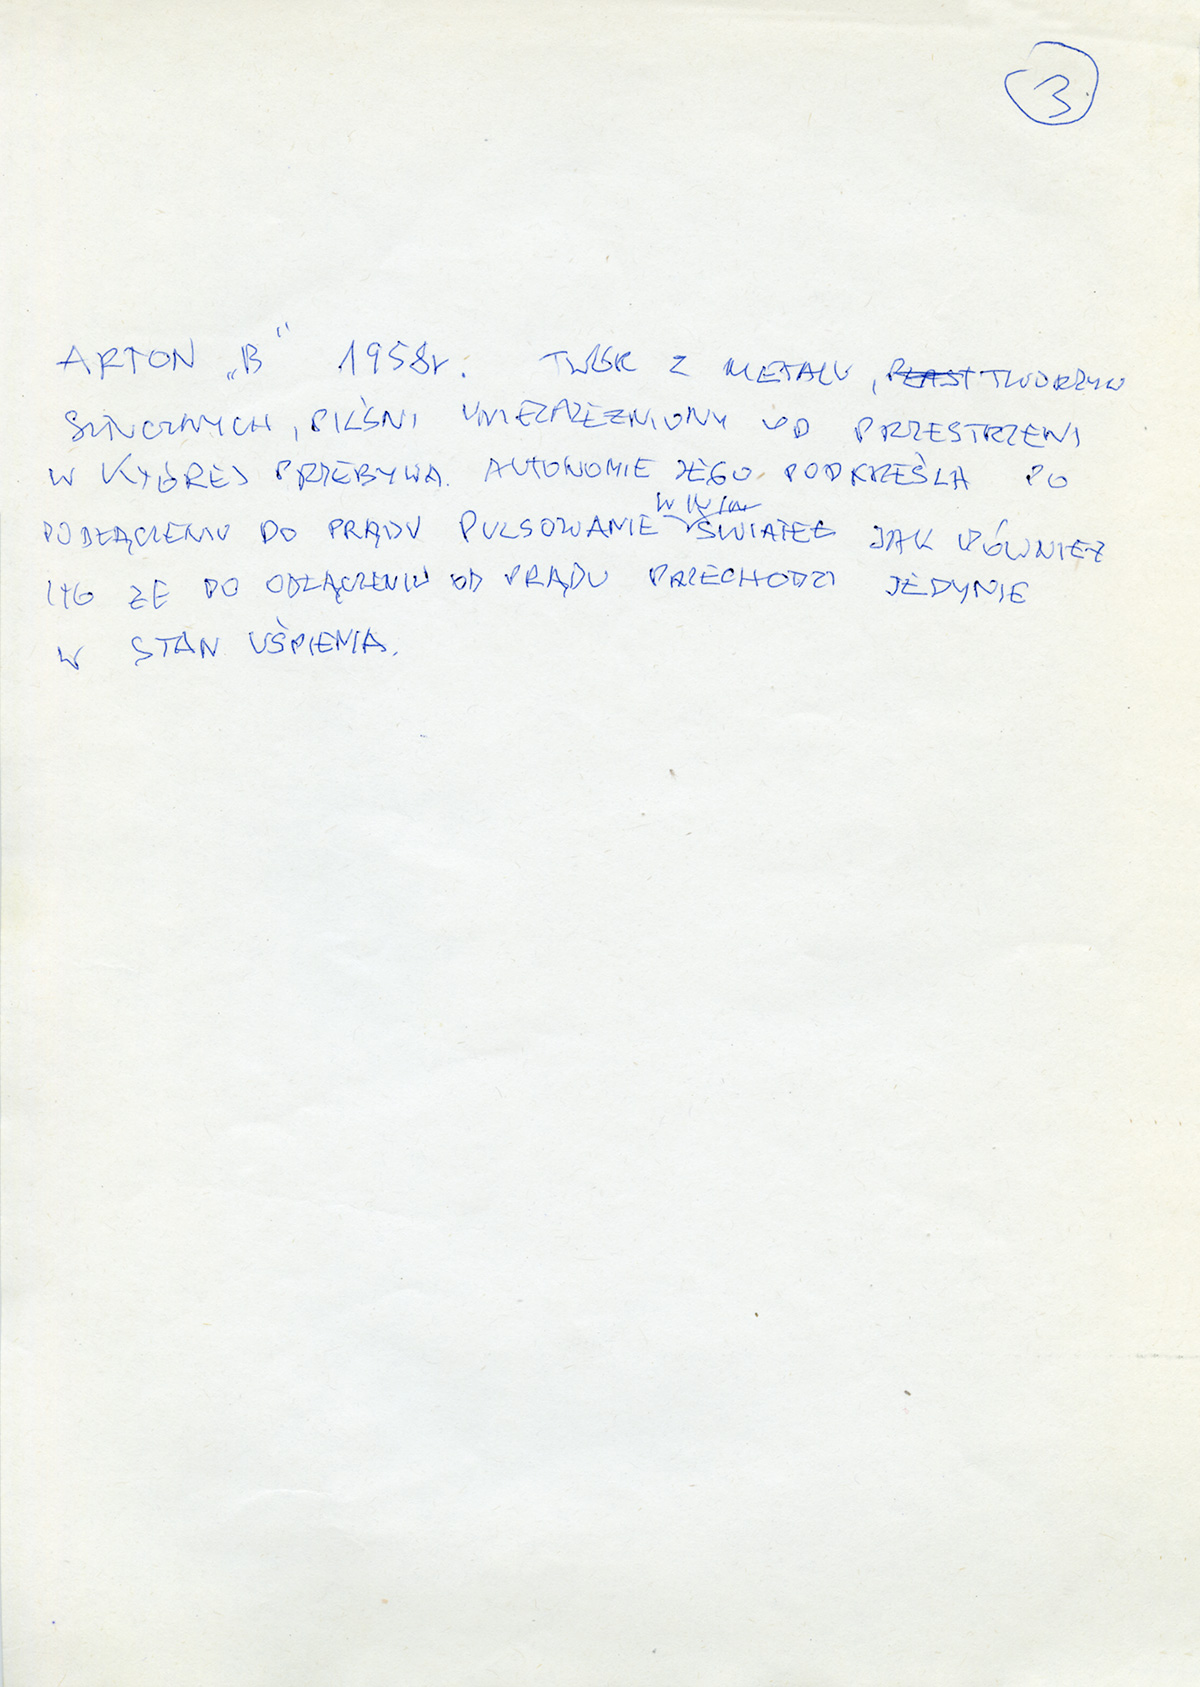 3
ARTON „B” 1958r. TWÓR Z METALU, PLAST TWORZYW
SZTUCZNYCH, PILŚNI UNIEZALEŻNIONY OD PRZESTRZENI
W KTÓREJ PRZEBYWA. AUTONOMIE JEGO PODKREŚLA PO
W NIM
PODŁĄCZENIU DO PRĄDU PULSOWANIE ŚWIATEŁ JAK RÓWNIEŻ
ITO ZE PO ODŁĄCZENIU OD PRĄDU PRZECHODZI JEDYNIE
W STAN UŚPIENIA.